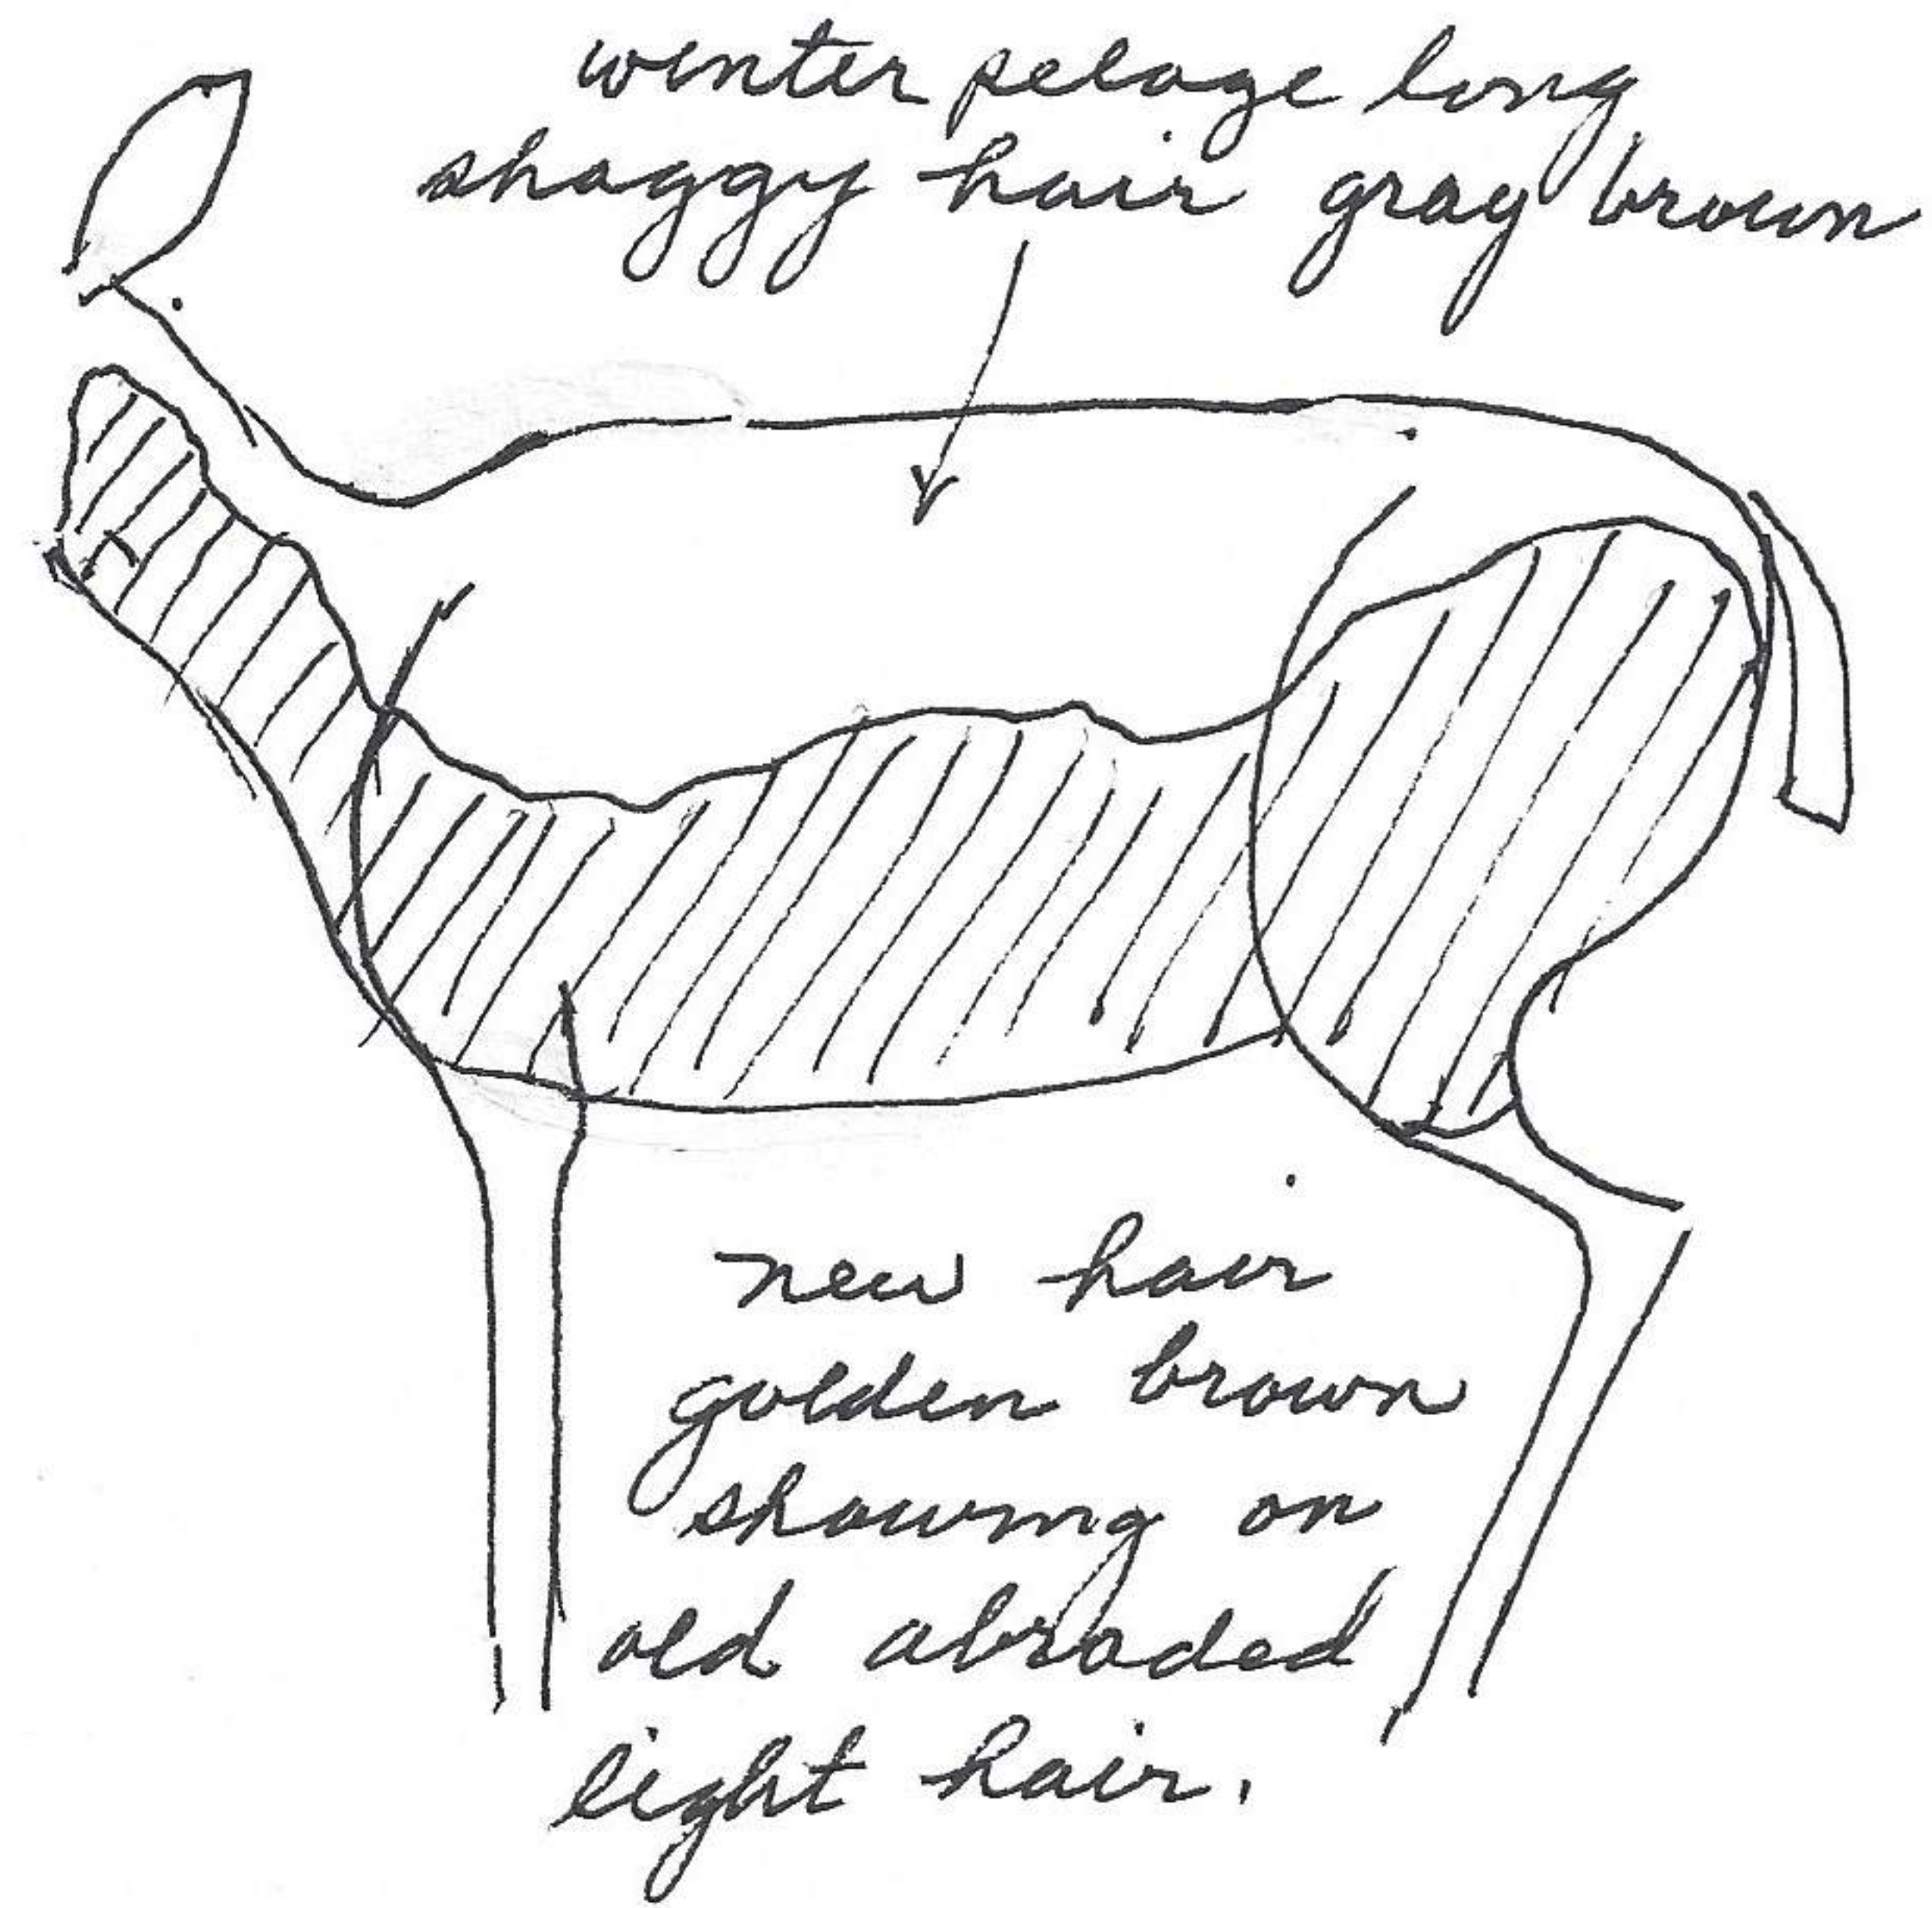 winter pelage long
shaggy hair gray brown
new hair
golden brown
showing on
old abraded
light hair.